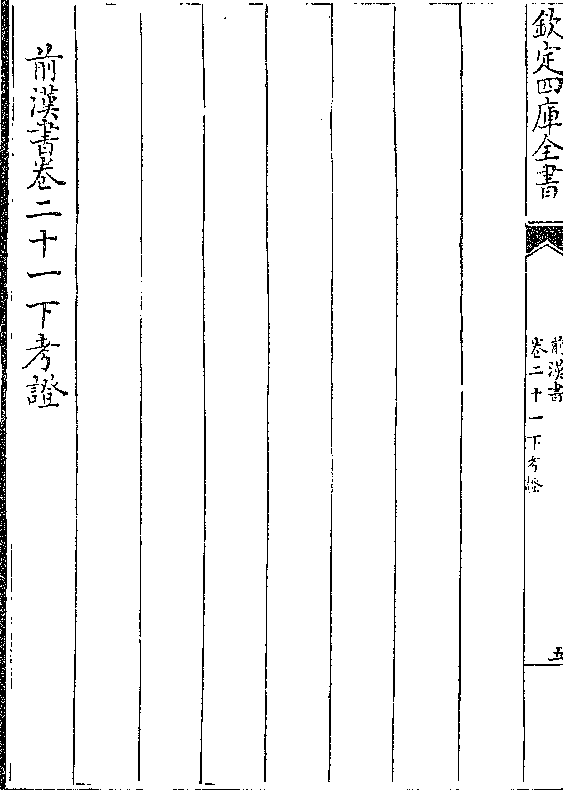 欽定四庫全書
前漢書
卷二十一下考證
五
前漢書卷二十一下考證